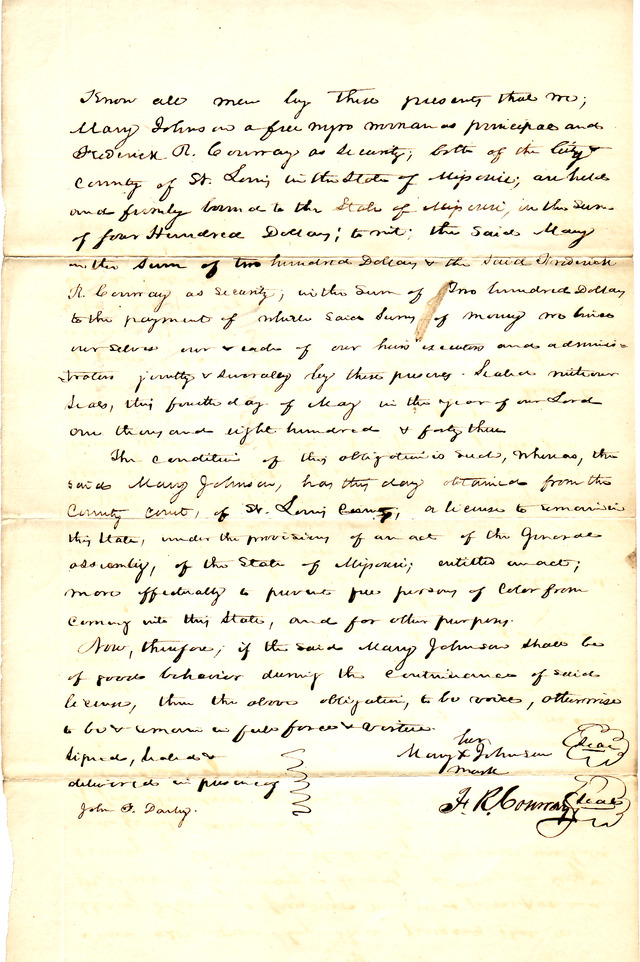 Know all men by these presents that we,
Mary Johnson a free negro woman as principal and
Frederick R. Conway as security; both of the City &
County of St. Louis in the State of Missouri; are held
and firmly bound to the State of Missouri, in the sum
of four Hundred Dollars; to wit; the said Mary
in the sum of two hundred Dollars & the said Frederick
R. Conway as security; in the sum of Two hundred Dollars
to the payment of which said sums of money we bind
our selves our & each of our heirs executors and adminis-
trators jointly & severally by these presents. Sealed with our
seals, this fourth day of May in the year of our Lord
one thousand eight hundred & forty three
The condition of this obligation is such, whereas, the
said Mary Johnson, has this day obtained from the
County Court, of St. Louis County, a license to remain in
this State, under the provisions of an act of the General
assembly, of the State of Missouri; entitled an act;
more effectually to prevent free persons of Color from
coming into this State, and for other purposes.
Now, therefore, if the said Mary Johnson shall be
of good behavior during the continuance of said
license, then the above obligation, to be void, otherwise
to be & remain in full force & virtue.
Signed, Sealed &
delivered in presence of
John F. Darby.
her
Mary X Johnson seal
mark
F. R. Conway seal